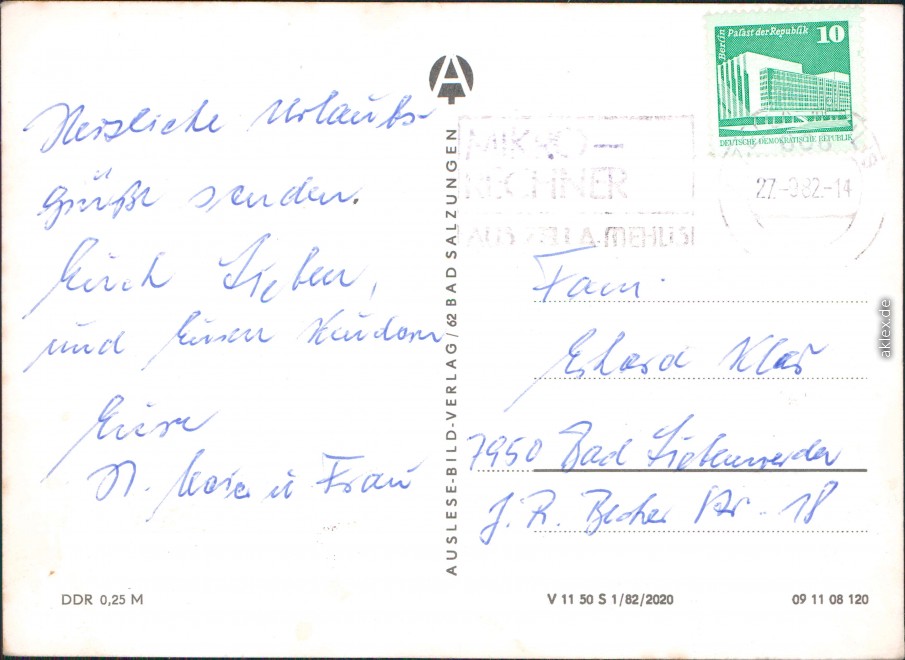 Herzliche Urlaubs-
grüße senden.
Euch Lieben,
und Euren Kindern
Eure
H. u Frau
AUSLESE-BILD-VERLAG / 62 BAD SALZUNGEN
Berlin
Palast der Republik 10
DEUTSCHE DEMOKRATISCHE REPUBLIK
MIKRO-
RECHNER
AUS ZELLA-MEHLIS
27.-9.82.-14
Fam.
Erhard Klas
7950 Bad Liebenwerda
J. R. Becher Str. 18
DDR 0,25 M
V 11 50 S 1/82/2020
09 11 08 120
aklex.de